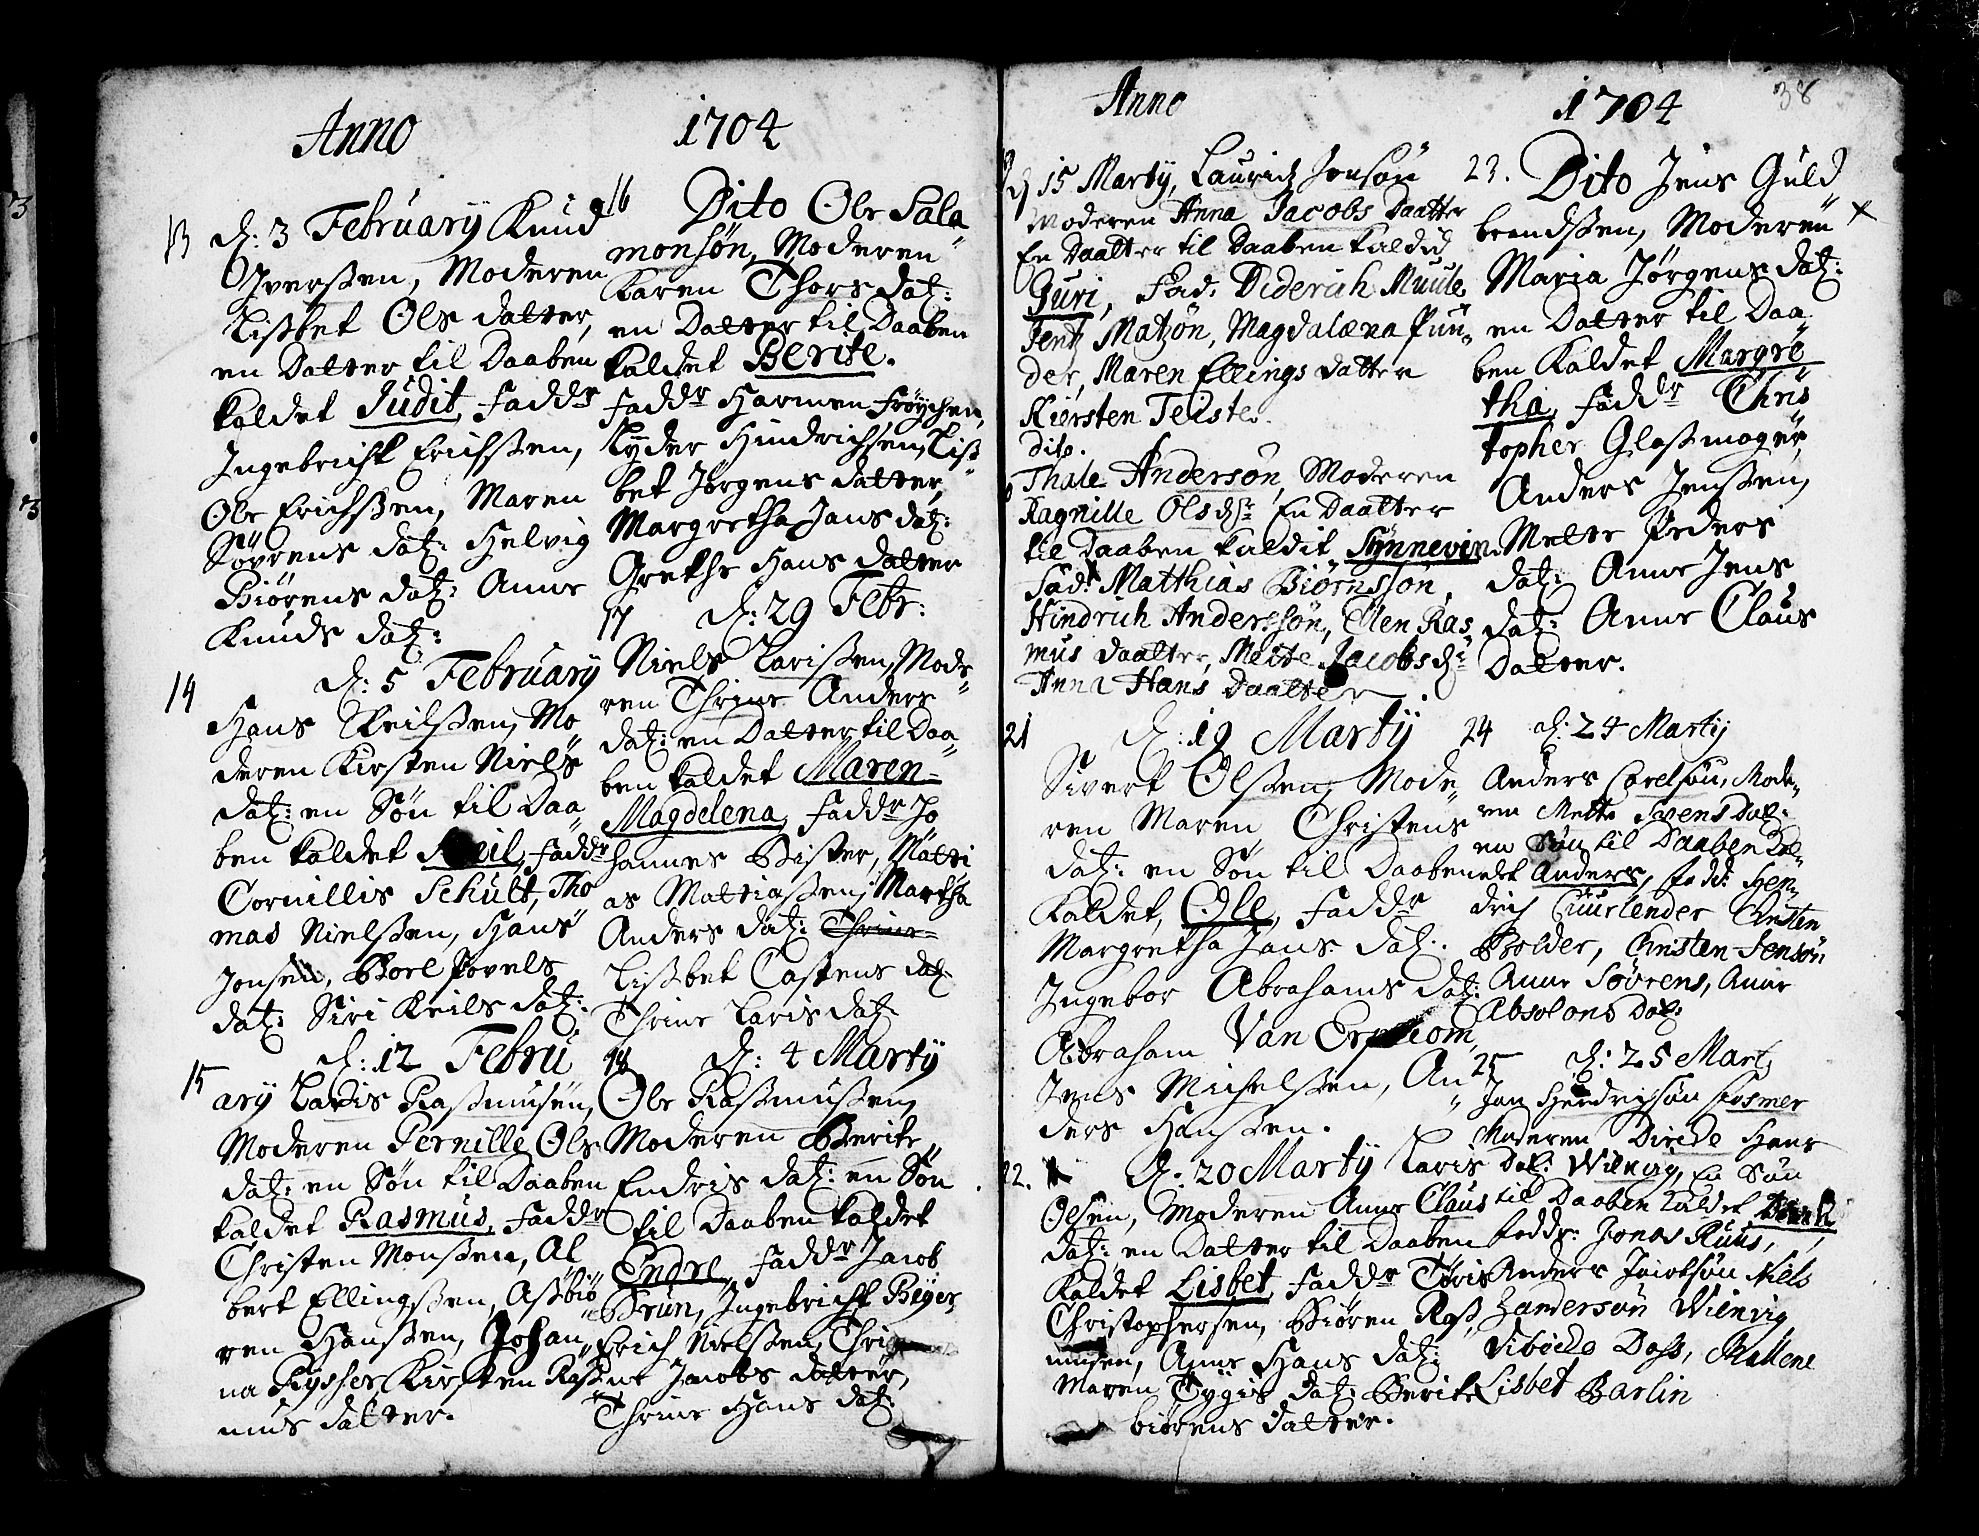 Anno 1704
13 d: 3 February Knud
Iverßen, Moderen
Lißbet Ols datter,
en Datter til Daaben
kaldet Judit, Faddr
Ingebricht Erichßen,
Ole Erichßen, Maren
Sørens dat: Helvig
Biørens dat: Anne
Knuds dat:
14 d: 5 February
Hans Neilßen, Mo
deren Kirsten Niels
dat: en Søn til Daa
ben kaldet Faddr
Cornillis Schult, Tho
mas Nielßen, Hans
Jonsen, Borel Povels
dat: Siri Neils dat:
15 d: 12 Febru
ary Laris Raßmusen,
Moderen Pernille Ols
dat: en Søn til Daaben
kaldet Rasmus, Faddr
Christen Monßen, Al
bert Ellingßen, Aßbiø
ren Hanßen, Johan
na Rysses Kirsten Raß
mus datter.
16 Dito Ole Sala
monsøn, Moderen
Karen Thors dat:
en Datter til Daaben
kaldet Berite.
Faddr Harmen Frøychen,
Lyder Hindrichsen, Liß
bet Jørgens datter,
Margretha Jans dat:
Grethe Hans datter
17 d: 29 Febr:
Niels Larißen, Mode
ren Thrine Anders
dat: en Datter til Daa
ben kaldet Maren
Magdelena, Faddr Jo
hannes Bister, Matti
as Mattiaßen, Martha
Anders dat: Thrine
Lißbet Castens dat
Thrine Laris dat
18 d: 4 Marty
Ole Raßmußen,
Moderen Berite
Endris dat: en Søn
til Daaben kaldet
Endre, Faddr Jacob
Brun, Ingebricht Beyer
Erich Nielßen, Thri
ne Jacobs datter,
Thrine Hans dat:
Anno 1704 38
d 15 Marty, Lauridz Jonsøn
Moderen Anna Jacobs Daatter
En Daatter til Daaben kaldid
Guri, Fad: Diderich Muule
Jentz Matzøn, Magdalæna Puu
der, Maren Ellings datter
Kiersten Teiste.
dito.
Thale Andersøn, Moderen
Ragnille Ols dr En Daatter
til Daaben kaldit Synneven
Fadr Matthias Biørnsson,
Hindrich Anderssøn, Ellen Ras
mus daatter, Mette Jacobs dr
Anna Hans Daatter
21 d: 19 Marty
Sivert Olßen, Mode
ren Maren Christens
dat: en Søn til Daaben
kaldet, Ole, Faddr
Margretha Jans dat:
Ingebor Abrahams dat:
Abraham Van
Jens Michelßen, An
ders Hanßen.
22. d: 20 Marty Laris
Olsen, Moderen Anne Claus
dat: en Datter til Daaben
kaldet Lisbet, Faddr Tøris
Christophersen, Biøren Raß
musen, Anne Hans dat:
Maren Tygis dat: Berite
biørens datter.
23. Dito Jens Guld
brandßen, Moderen
Maria Jørgens dat:
en Datter til Daa
ben Kaldet Margre
tha, Faddr Chris
topher Glaßmager,
Anders Jenßen,
Mette Peders
dat: Anne Jens
dat: Anne Claus
Datter.
24 d: 24 Marty
Anders Carelsøn, Mode
ren Mette Svens Dat:
en Søn til Daaben kal
det Anders, fadd: Hen
drich Cuurlender Christen
Bolder, Christen Jensøn
Anne Sørens, Anne
Absolons Dat:
25 d: 25 Mart
Jan Hendrichsøn Cosmer
Moderen Direde Hans
Dat: Wilnvig, En Søn
til Daaben kaldet
fadd: Jonas Ruus,
Anders Jacobsøn Niels
Zandersøn Wilnvig
Vibicke Daß, Mallene
Lisbet Barlin